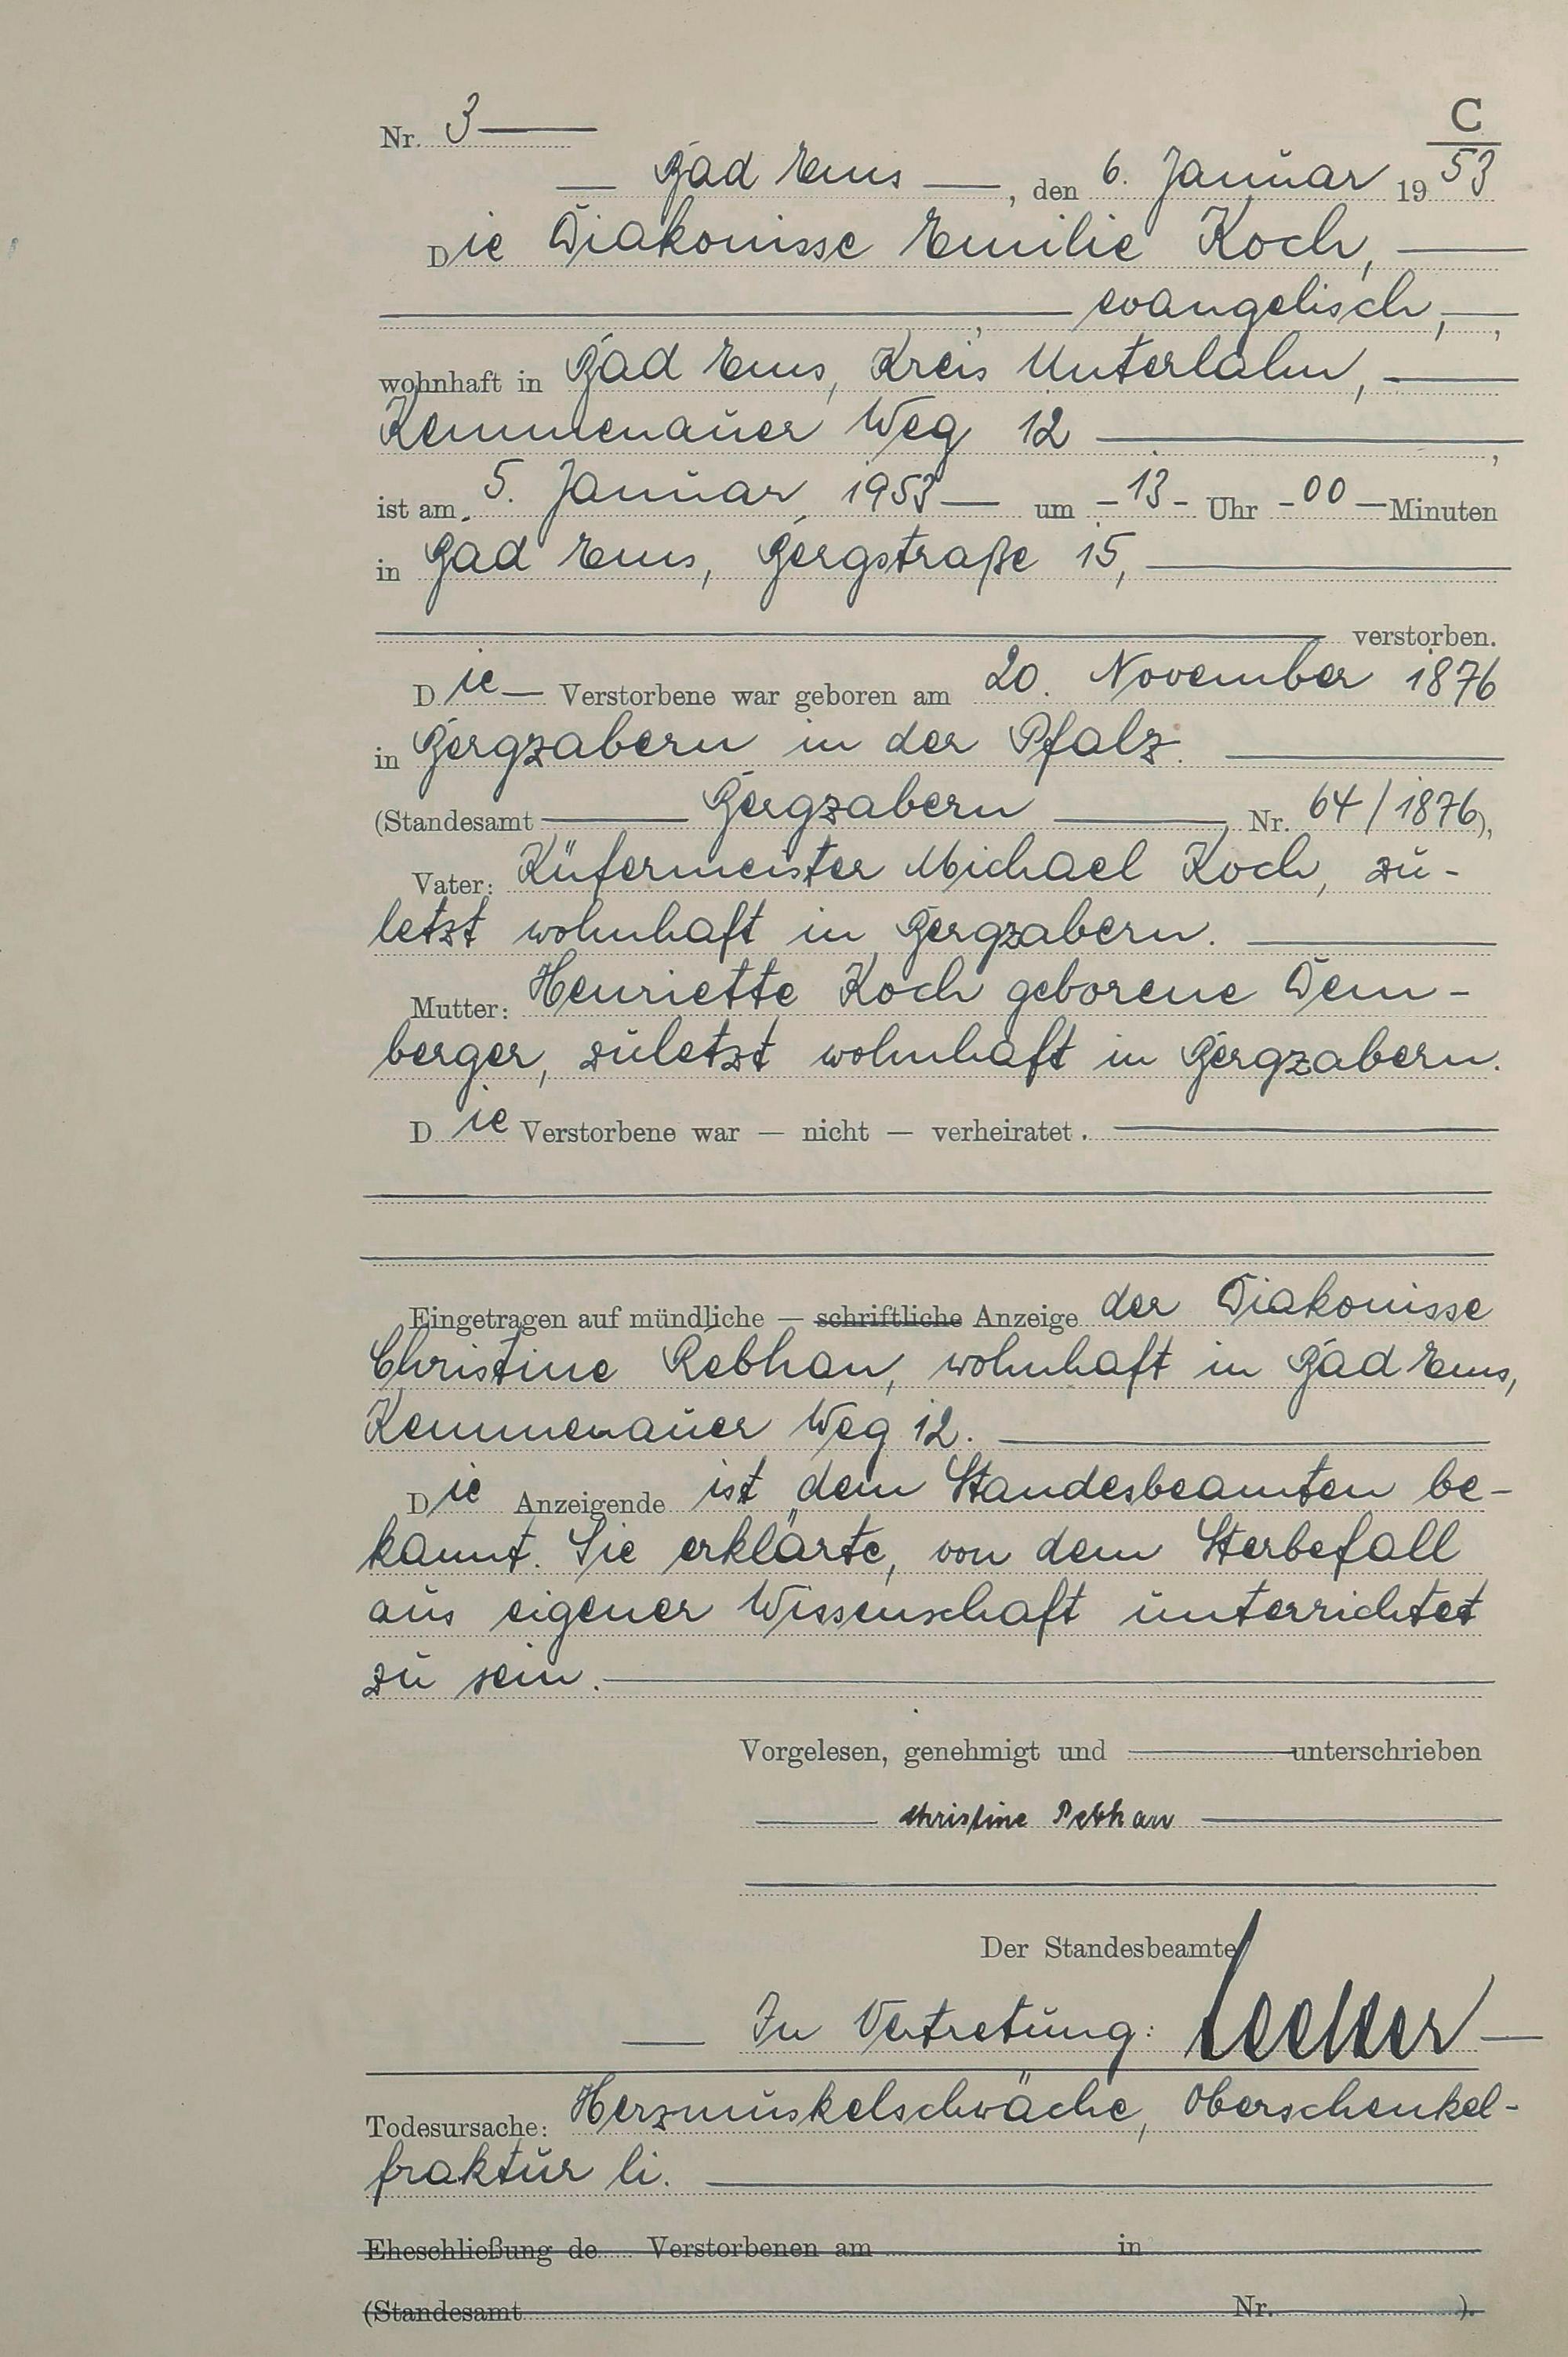 C
Nr. 3
Bad Ems, den 6. Januar 1953
Die Diakonisse Emilie Koch,
, evangelisch,
wohnhaft in Bad Ems, Kreis Unterlahn,
Kemmenauer Weg 12,
ist am 5. Januar 1953 um -13- Uhr -00- Minuten
in Bad Ems, Bergstraße 15,
verstorben.
Die Verstorbene war geboren am 20. November 1876
in Bergzabern in der Pfalz.
(Standesamt Bergzabern Nr. 64/1876),
Vater: Küfermeister Michael Koch, zu-
letzt wohnhaft in Bergzabern.
Mutter: Henriette Koch geborene Dem-
berger, zuletzt wohnhaft in Bergzabern.
Die Verstorbene war — nicht — verheiratet.
Eingetragen auf mündliche — schriftliche Anzeige der Diakonisse
Christine Rebhan, wohnhaft in Bad Ems,
Kemmenauer Weg 12.
Die Anzeigende ist dem Standesbeamten be-
kannt. Sie erklärte, von dem Sterbefall
aus eigener Wissenschaft unterrichtet
zu sein.
Vorgelesen, genehmigt und unterschrieben
Christine Rebhan
Der Standesbeamte
In Vertretung:
Todesursache: Herzmuskelschwäche, Oberschenkel-
fraktur li.
Eheschließung de Verstorbenen am in
(Standesamt Nr. ).